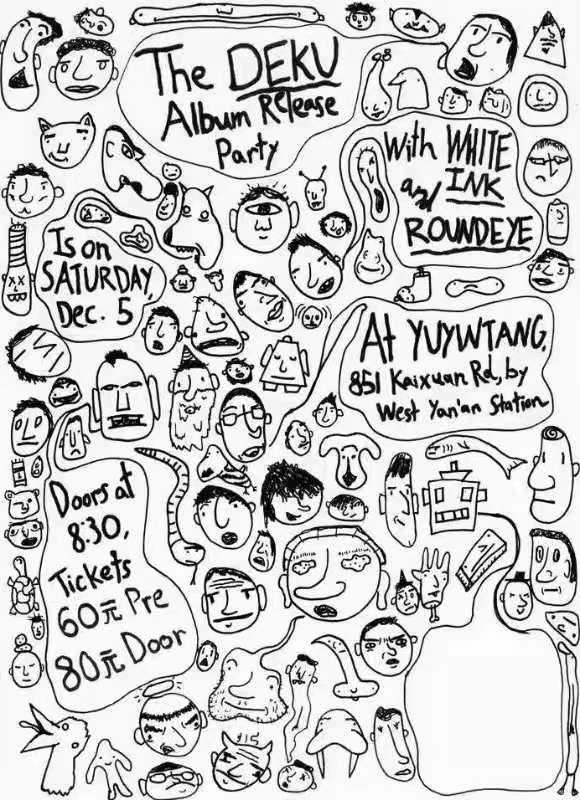 The DEKU
Album Release
Party
With WHITE
and INK
ROUNDEYE
Is on
SATURDAY,
Dec. 5
At YUYINTANG,
851 Kaixuan Rd, by
West Yan'an Station
Doors at
8:30,
Tickets
60元 Pre
80元 Door